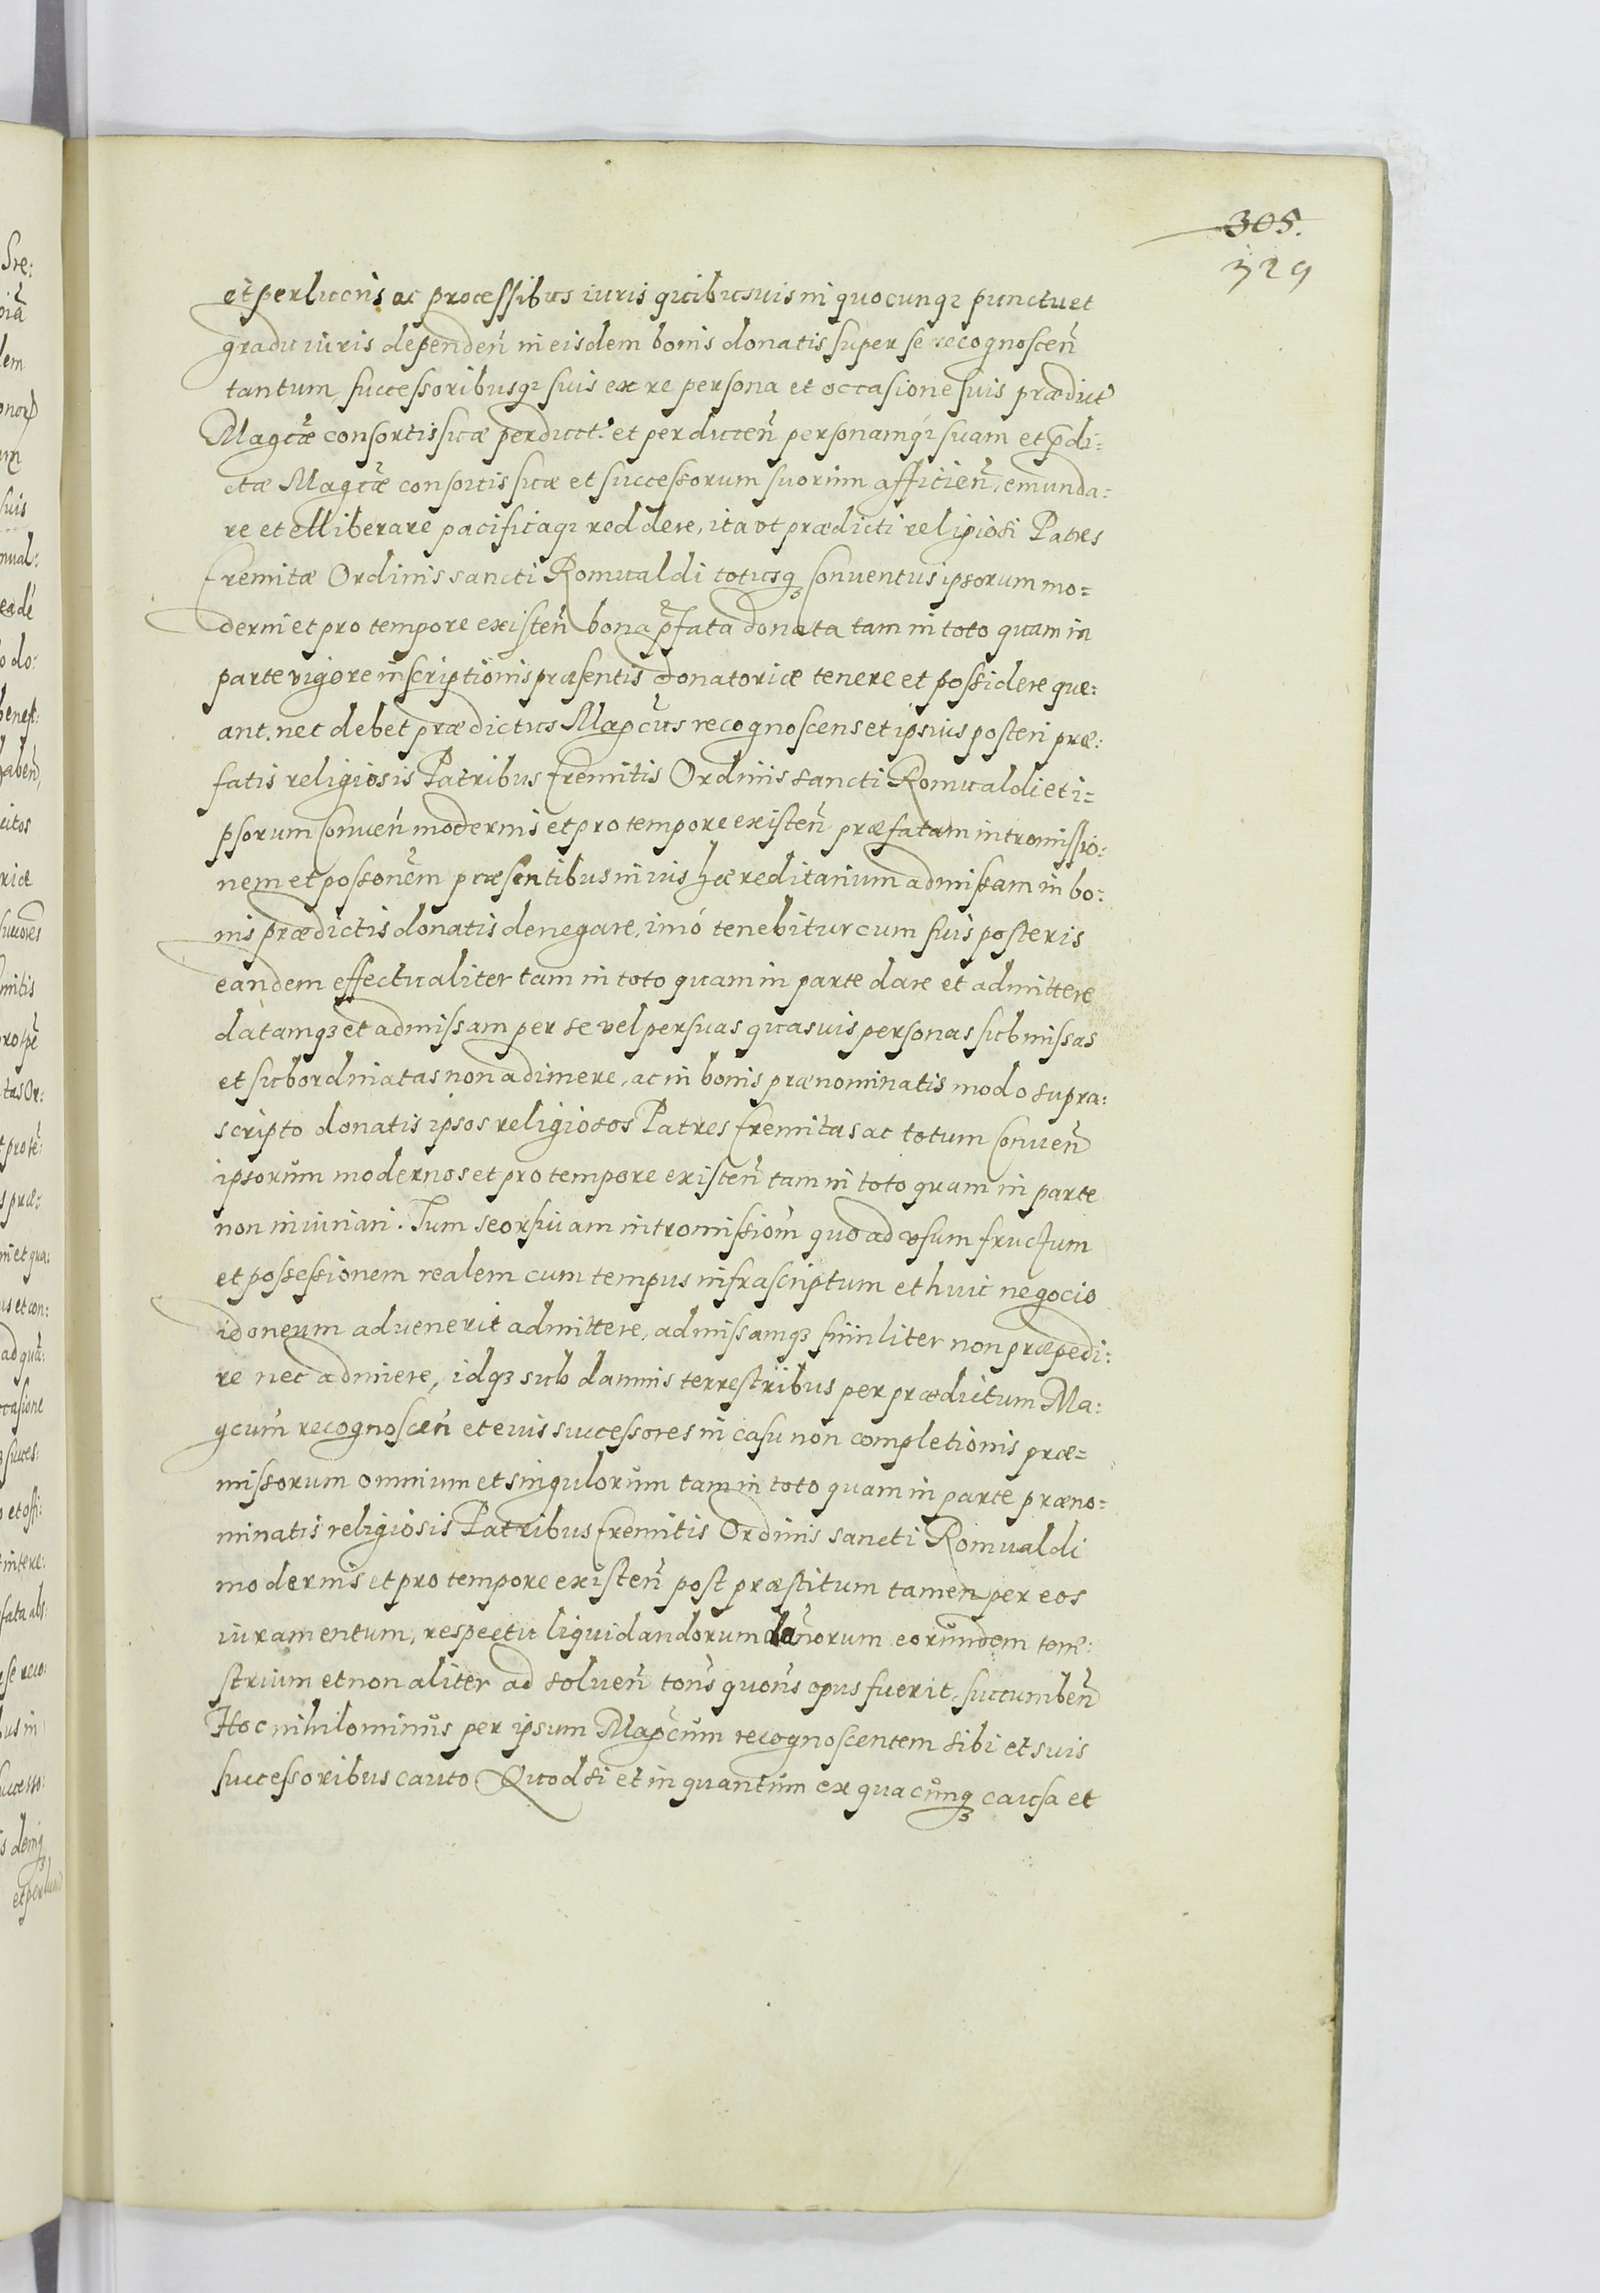 305.
329
et perlucris ac processibus iuris quibusuis in quocunq; punctu et
gradu iuris dependeñ in eisdem bonis donatis super se recognosceñ
tantum successoribusq; suis ex re persona et occasione suis prædict
Magcæ consortis suæ perduct. et perduceñ personamq; suam et p̃di=
ctæ Magcæ consortis suæ et successorum suorum afficieñ, emunda=
re et elliberare pacificaq; reddere, ita vt prædicti religiosi Patres
Eremitæ Ordinis sancti Romualdi totusq; Conuentus ipsorum mo=
derni et pro tempore existeñ bona p̃fata donata tam in toto quam in
parte vigore inscriptionis præsentis donatoriæ tenere et possidere que=
ant. nec debet prædictus Magcus recognoscens et ipsius posteri præ=
fatis religiosis Patribus Eremitis Ordinis sancti Romualdi et i=
psorum Conueñ modernis et pro tempore existeñ præfatam intromissio=
nem et possonem præsentibus in ius hæreditarium admissam in bo=
nis prædictis donatis denegare, imó tenebitur cum suis posteris
eandem effectualiter tam in toto quam in parte dare et admittere
datamq; et admissam per se vel per suas quasuis personas submissas
et subordinatas non adimere, ac in bonis prænominatis modo supra=
scripto donatis ipsos religiosos Patres Eremitas ac totum Conueñ
ipsorum modernos et pro tempore existeñ tam in toto quam in parte
non iniuriari. Tum seorsiuam intromissiom̃ quo ad vsum fructum
et possessionem realem cum tempus infrascriptum et huic negocio
idoneum aduenerit admittere, admissamq; similiter non præpedi=
re nec adimere, idq; sub damnis terrestribus per prædictum Ma=
gcum recognosceñ et eius successores in casu non completionis præ=
missorum omnium et singulorum tam in toto quam in parte præno=
minatis religiosis Patribus Eremitis Ordinis sancti Romualdi
modernis et pro tempore existeñ post præstitum tamen per eos
iuramentum, respectu liquidandorum dañorum eorundem terre=
strium et non aliter ad solueñ toñs quoñs opus fuerit, succumbeñ
Hoc nihilominus per ipsum Magcum recognoscentem sibi et suis
successoribus cauto Quod si et in quantum ex quacunq; causa et